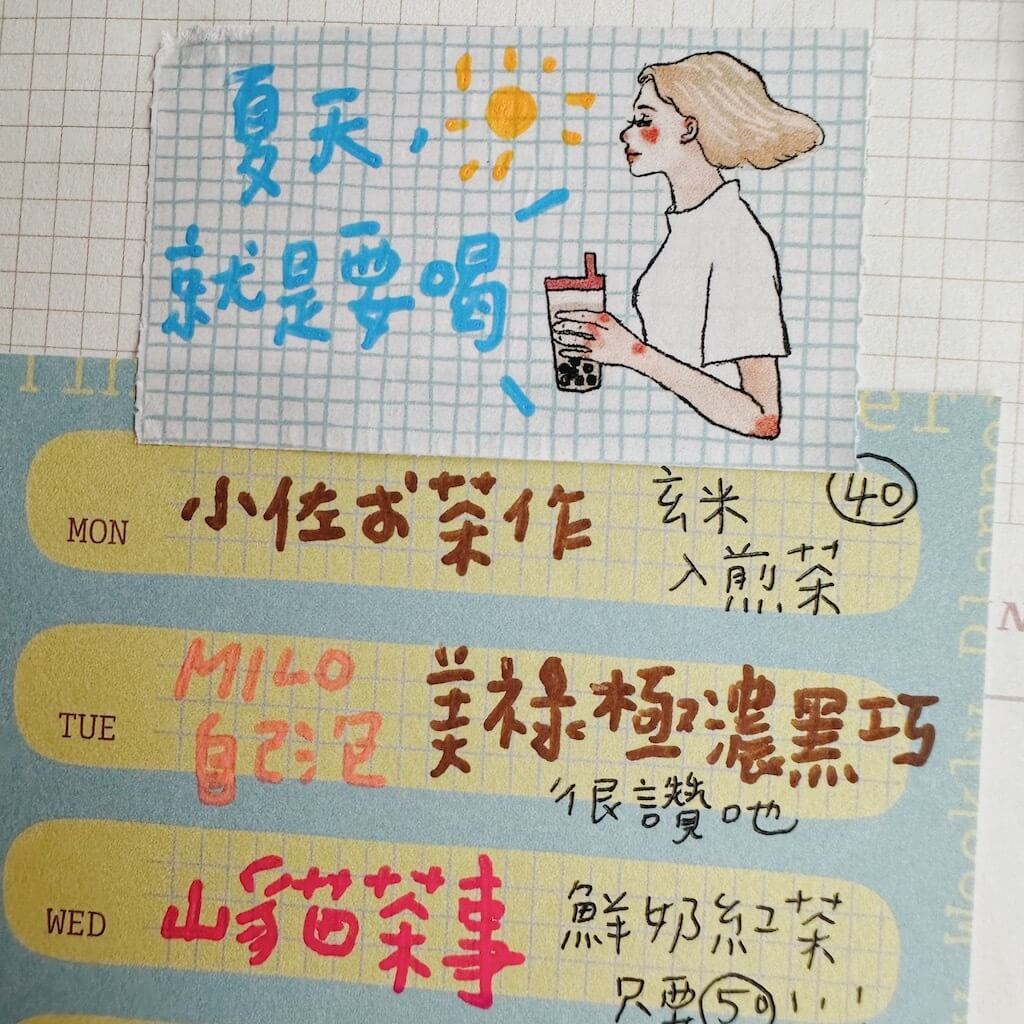 夏天，
就是要喝
MON
小佐お茶作
玄米
40
入煎茶
TUE
MILO
自己泡
美祿極濃黑巧
很讚吔
WED
山貓茶事
鮮奶紅茶
只要50!!!